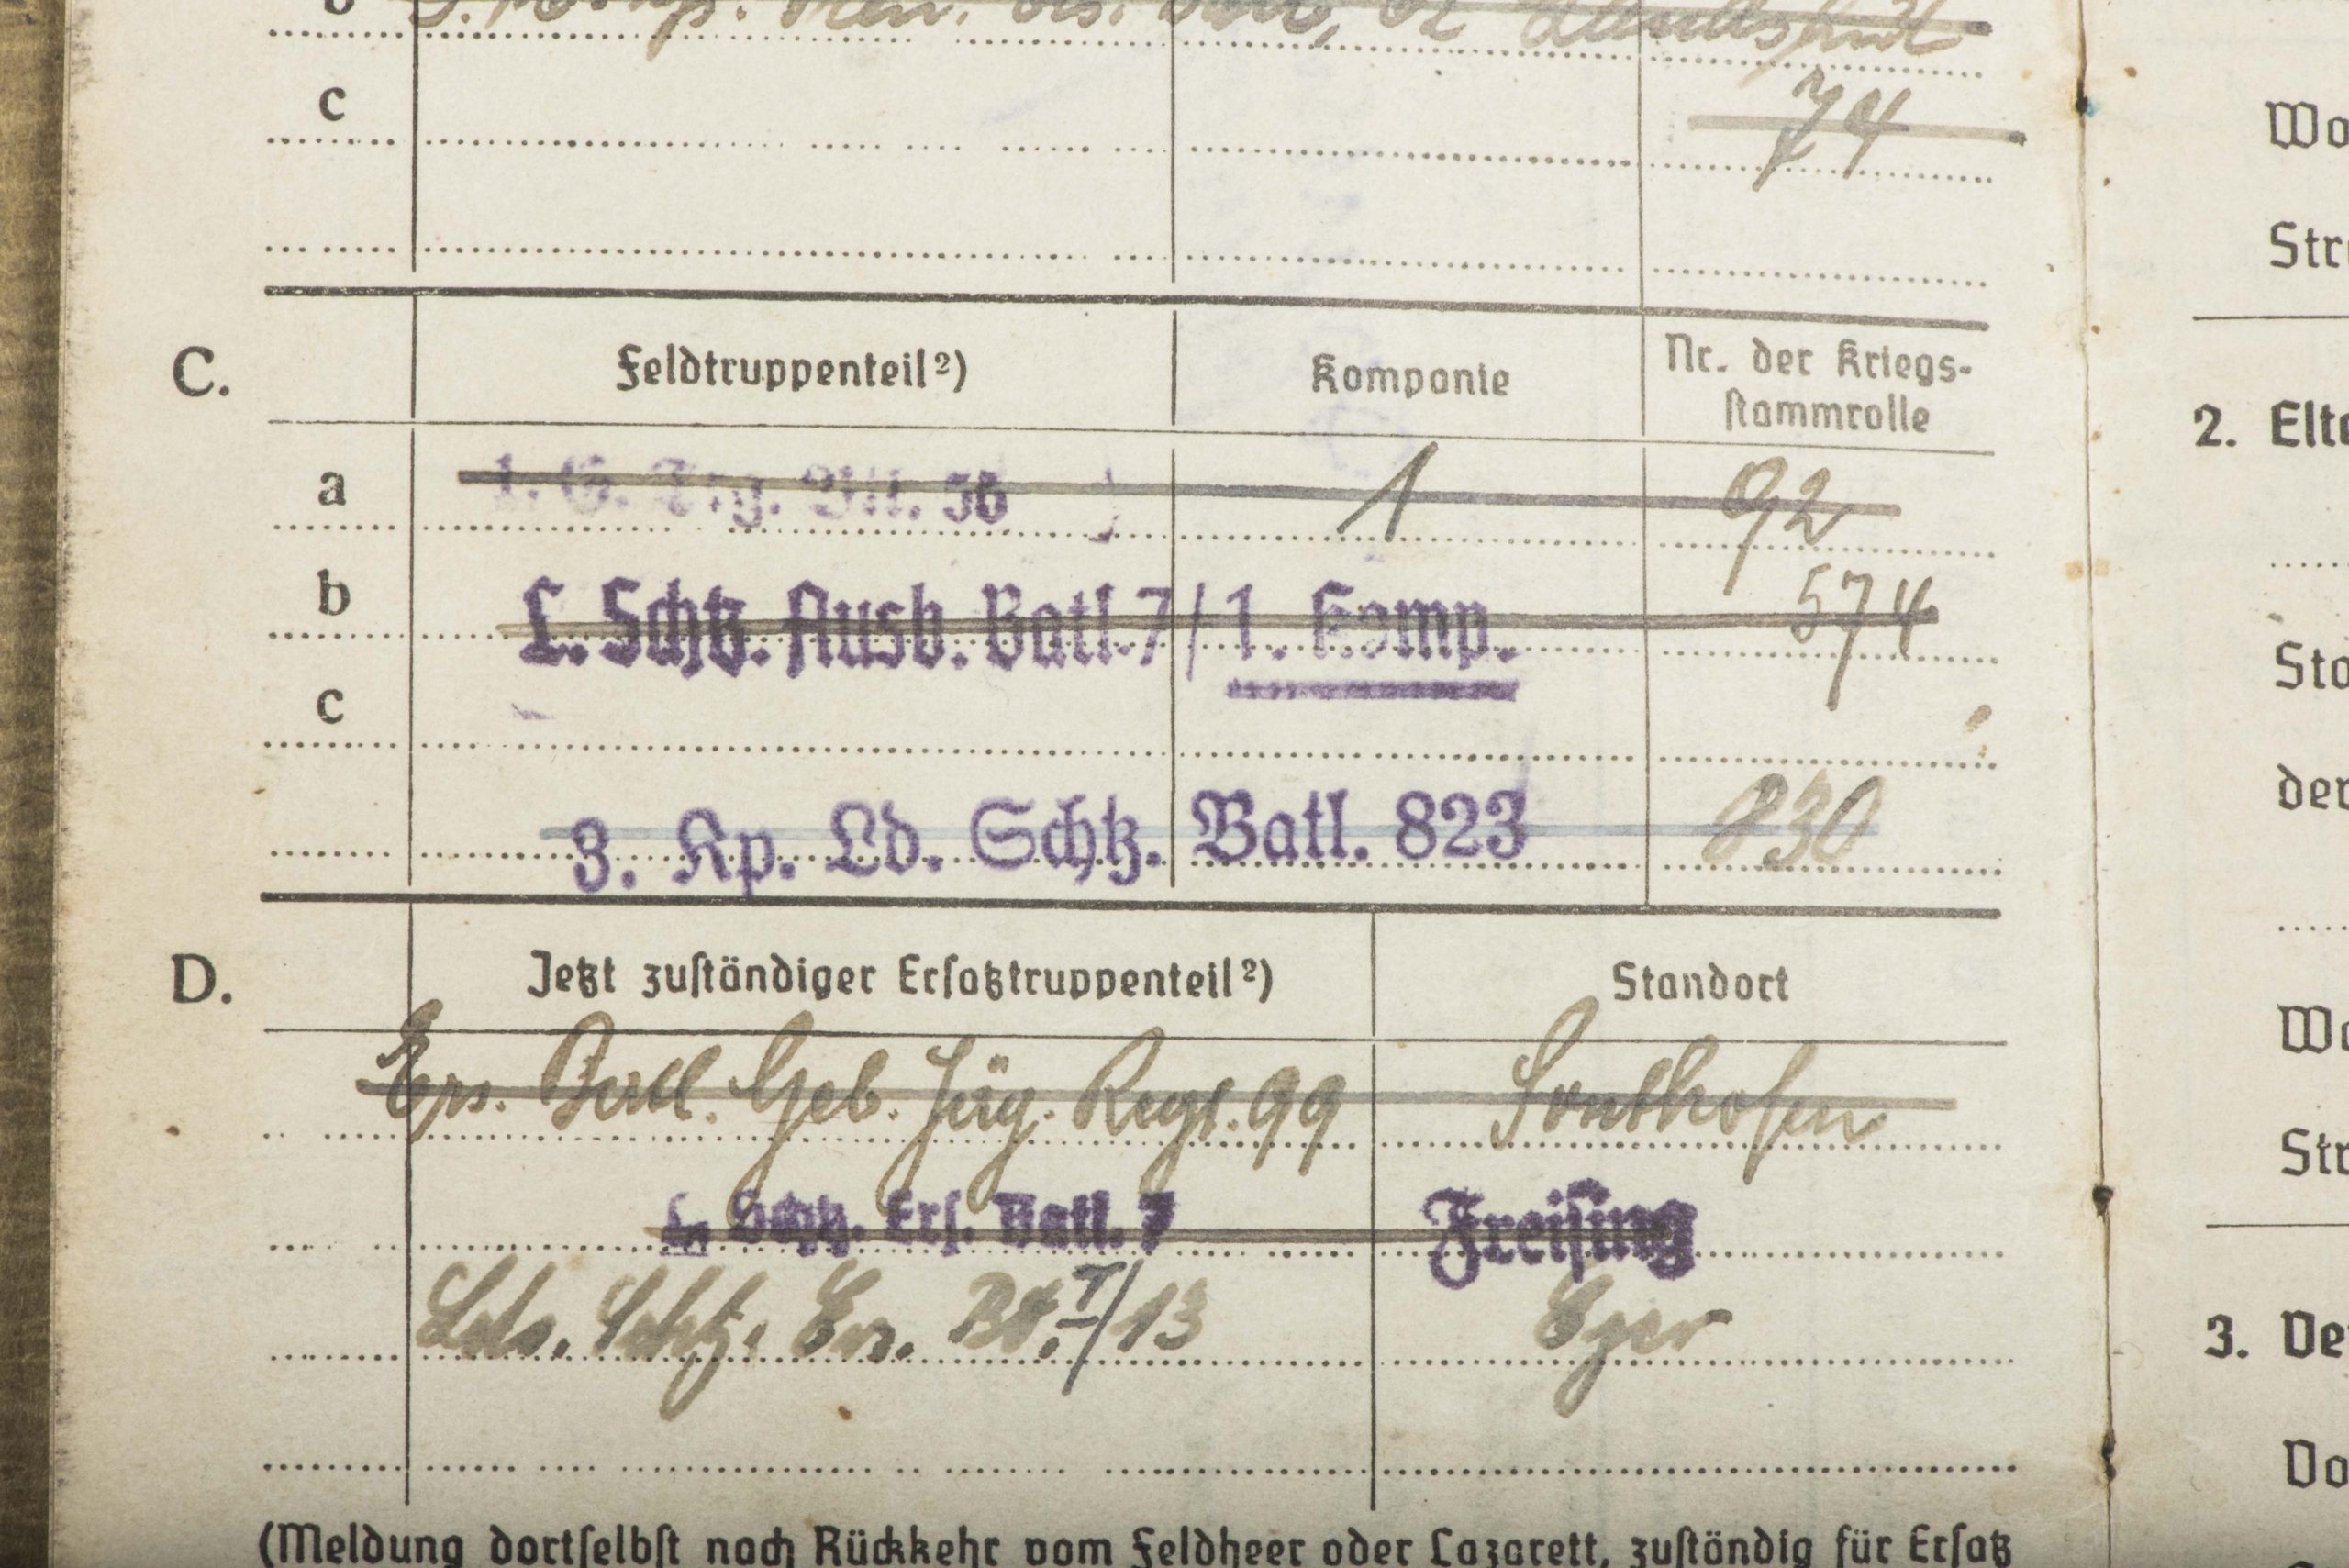 b
Landeshut
c 74
C. Feldtruppenteil²) Kompanie Nr. der Kriegs-
stammrolle
a 56 1 92
b L. Schtz. Ausb. Batl. 7/1. Komp. 574
c
3. Kp. Ld. Schtz. Batl. 823 830
D. Jetzt zuständiger Ersatztruppenteil²) Standort
Ers. Batl. Geb. Jäg. Regt. 99 Sonthofen
L. Schtz. Ers. Batl. 7 Freising
Lds. Schtz. Ers. Bt. I/13 Eger
(Meldung dortselbst nach Rückkehr vom Feldheer oder Lazarett, zuständig für Ersatz
Wo
Str
2. Elt
der
Wo
Str
3.